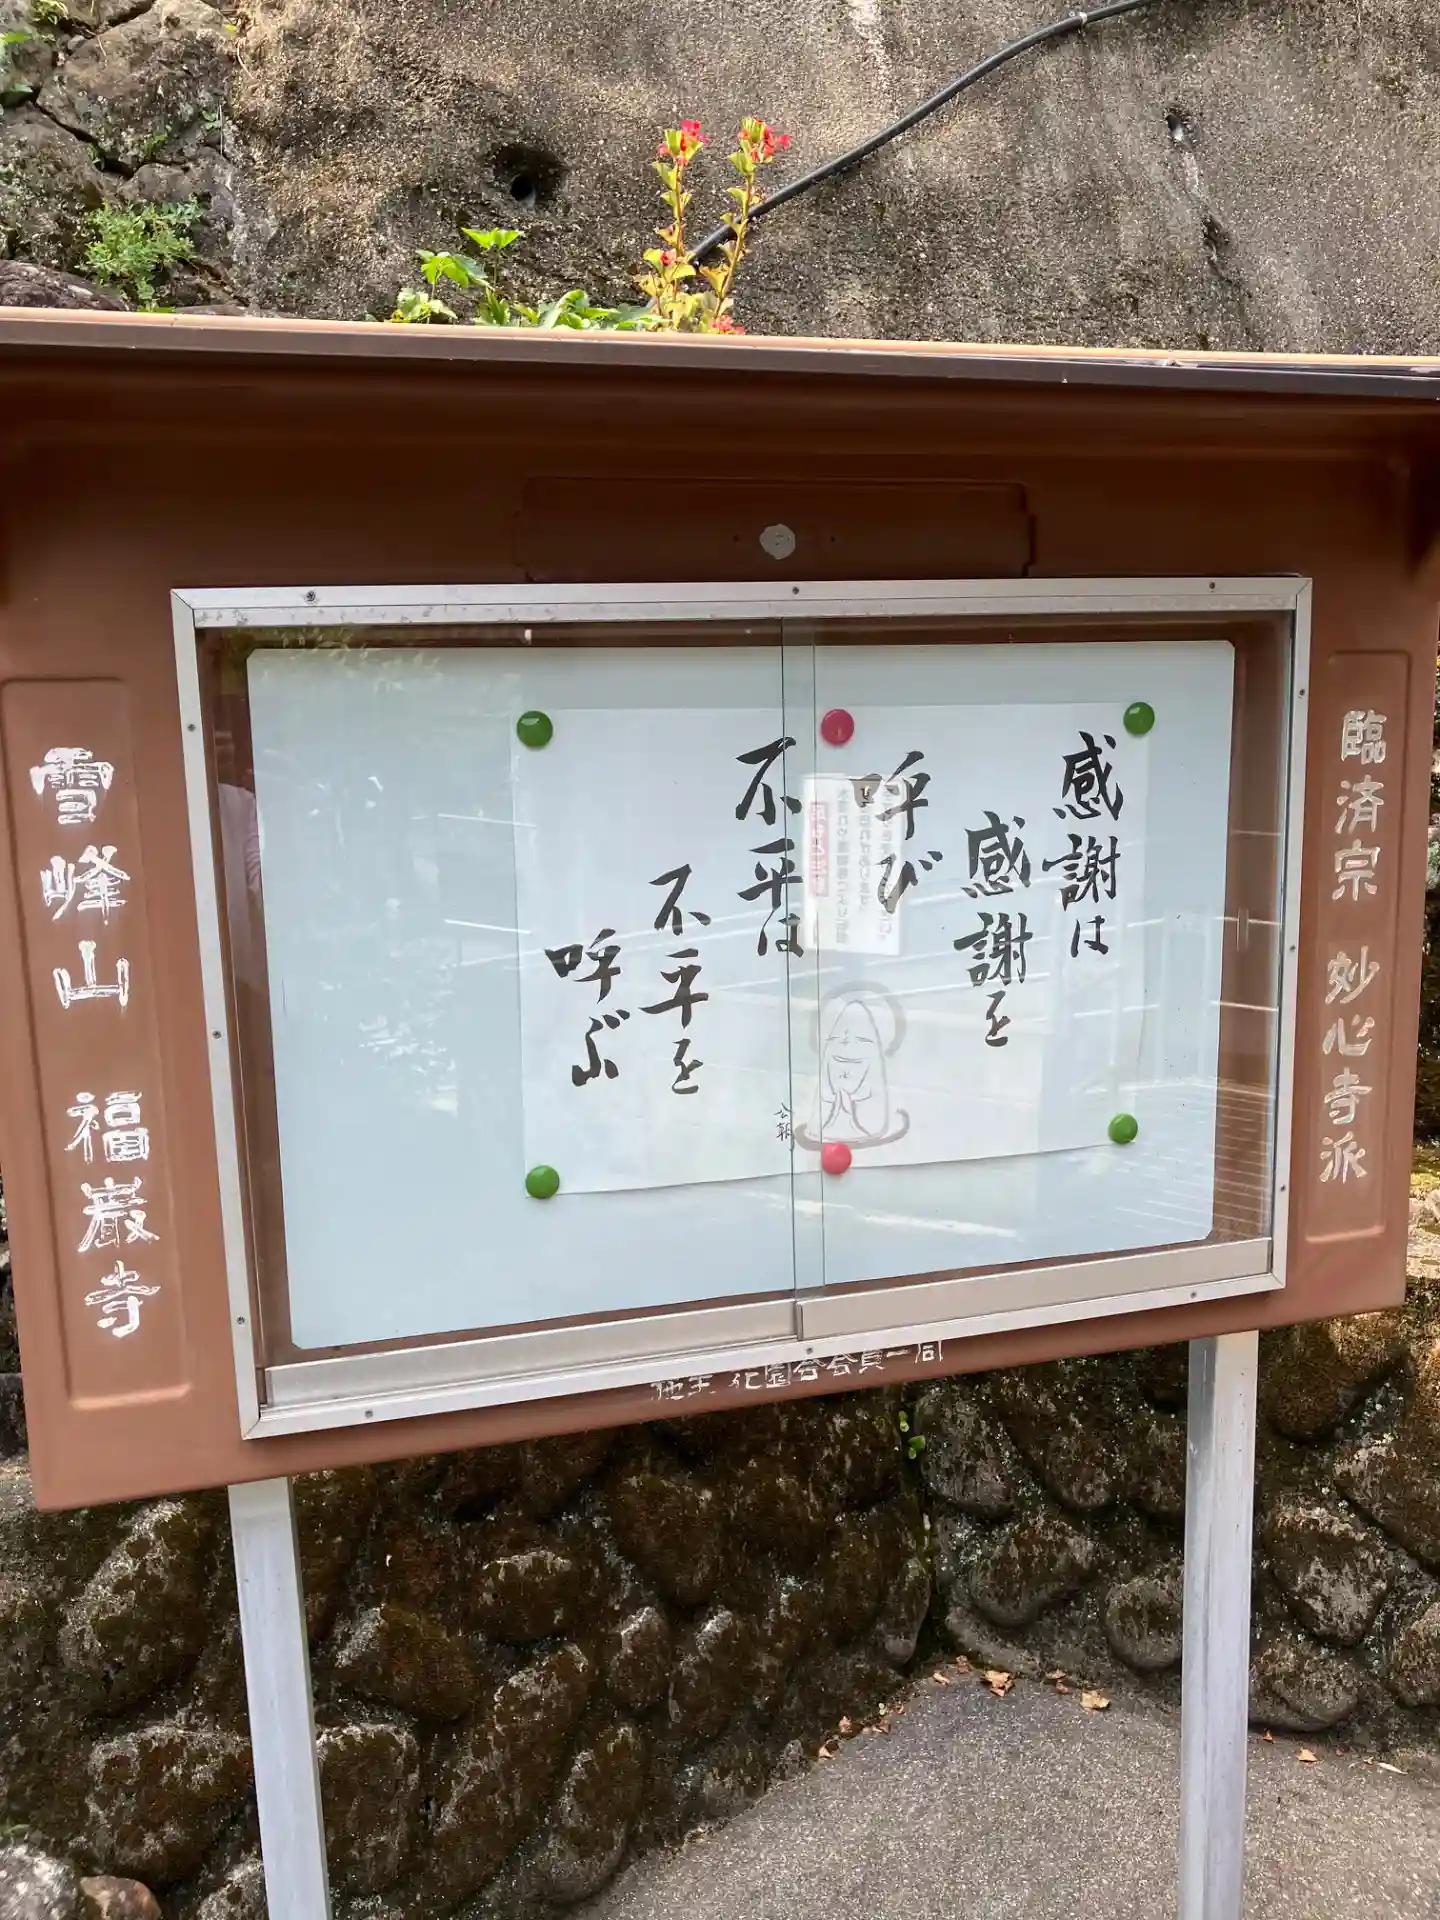 臨済宗 妙心寺派
感謝は
感謝を
呼び
不平は
不平を
呼ぶ
雪峰山 福巌寺
花園会会員一同